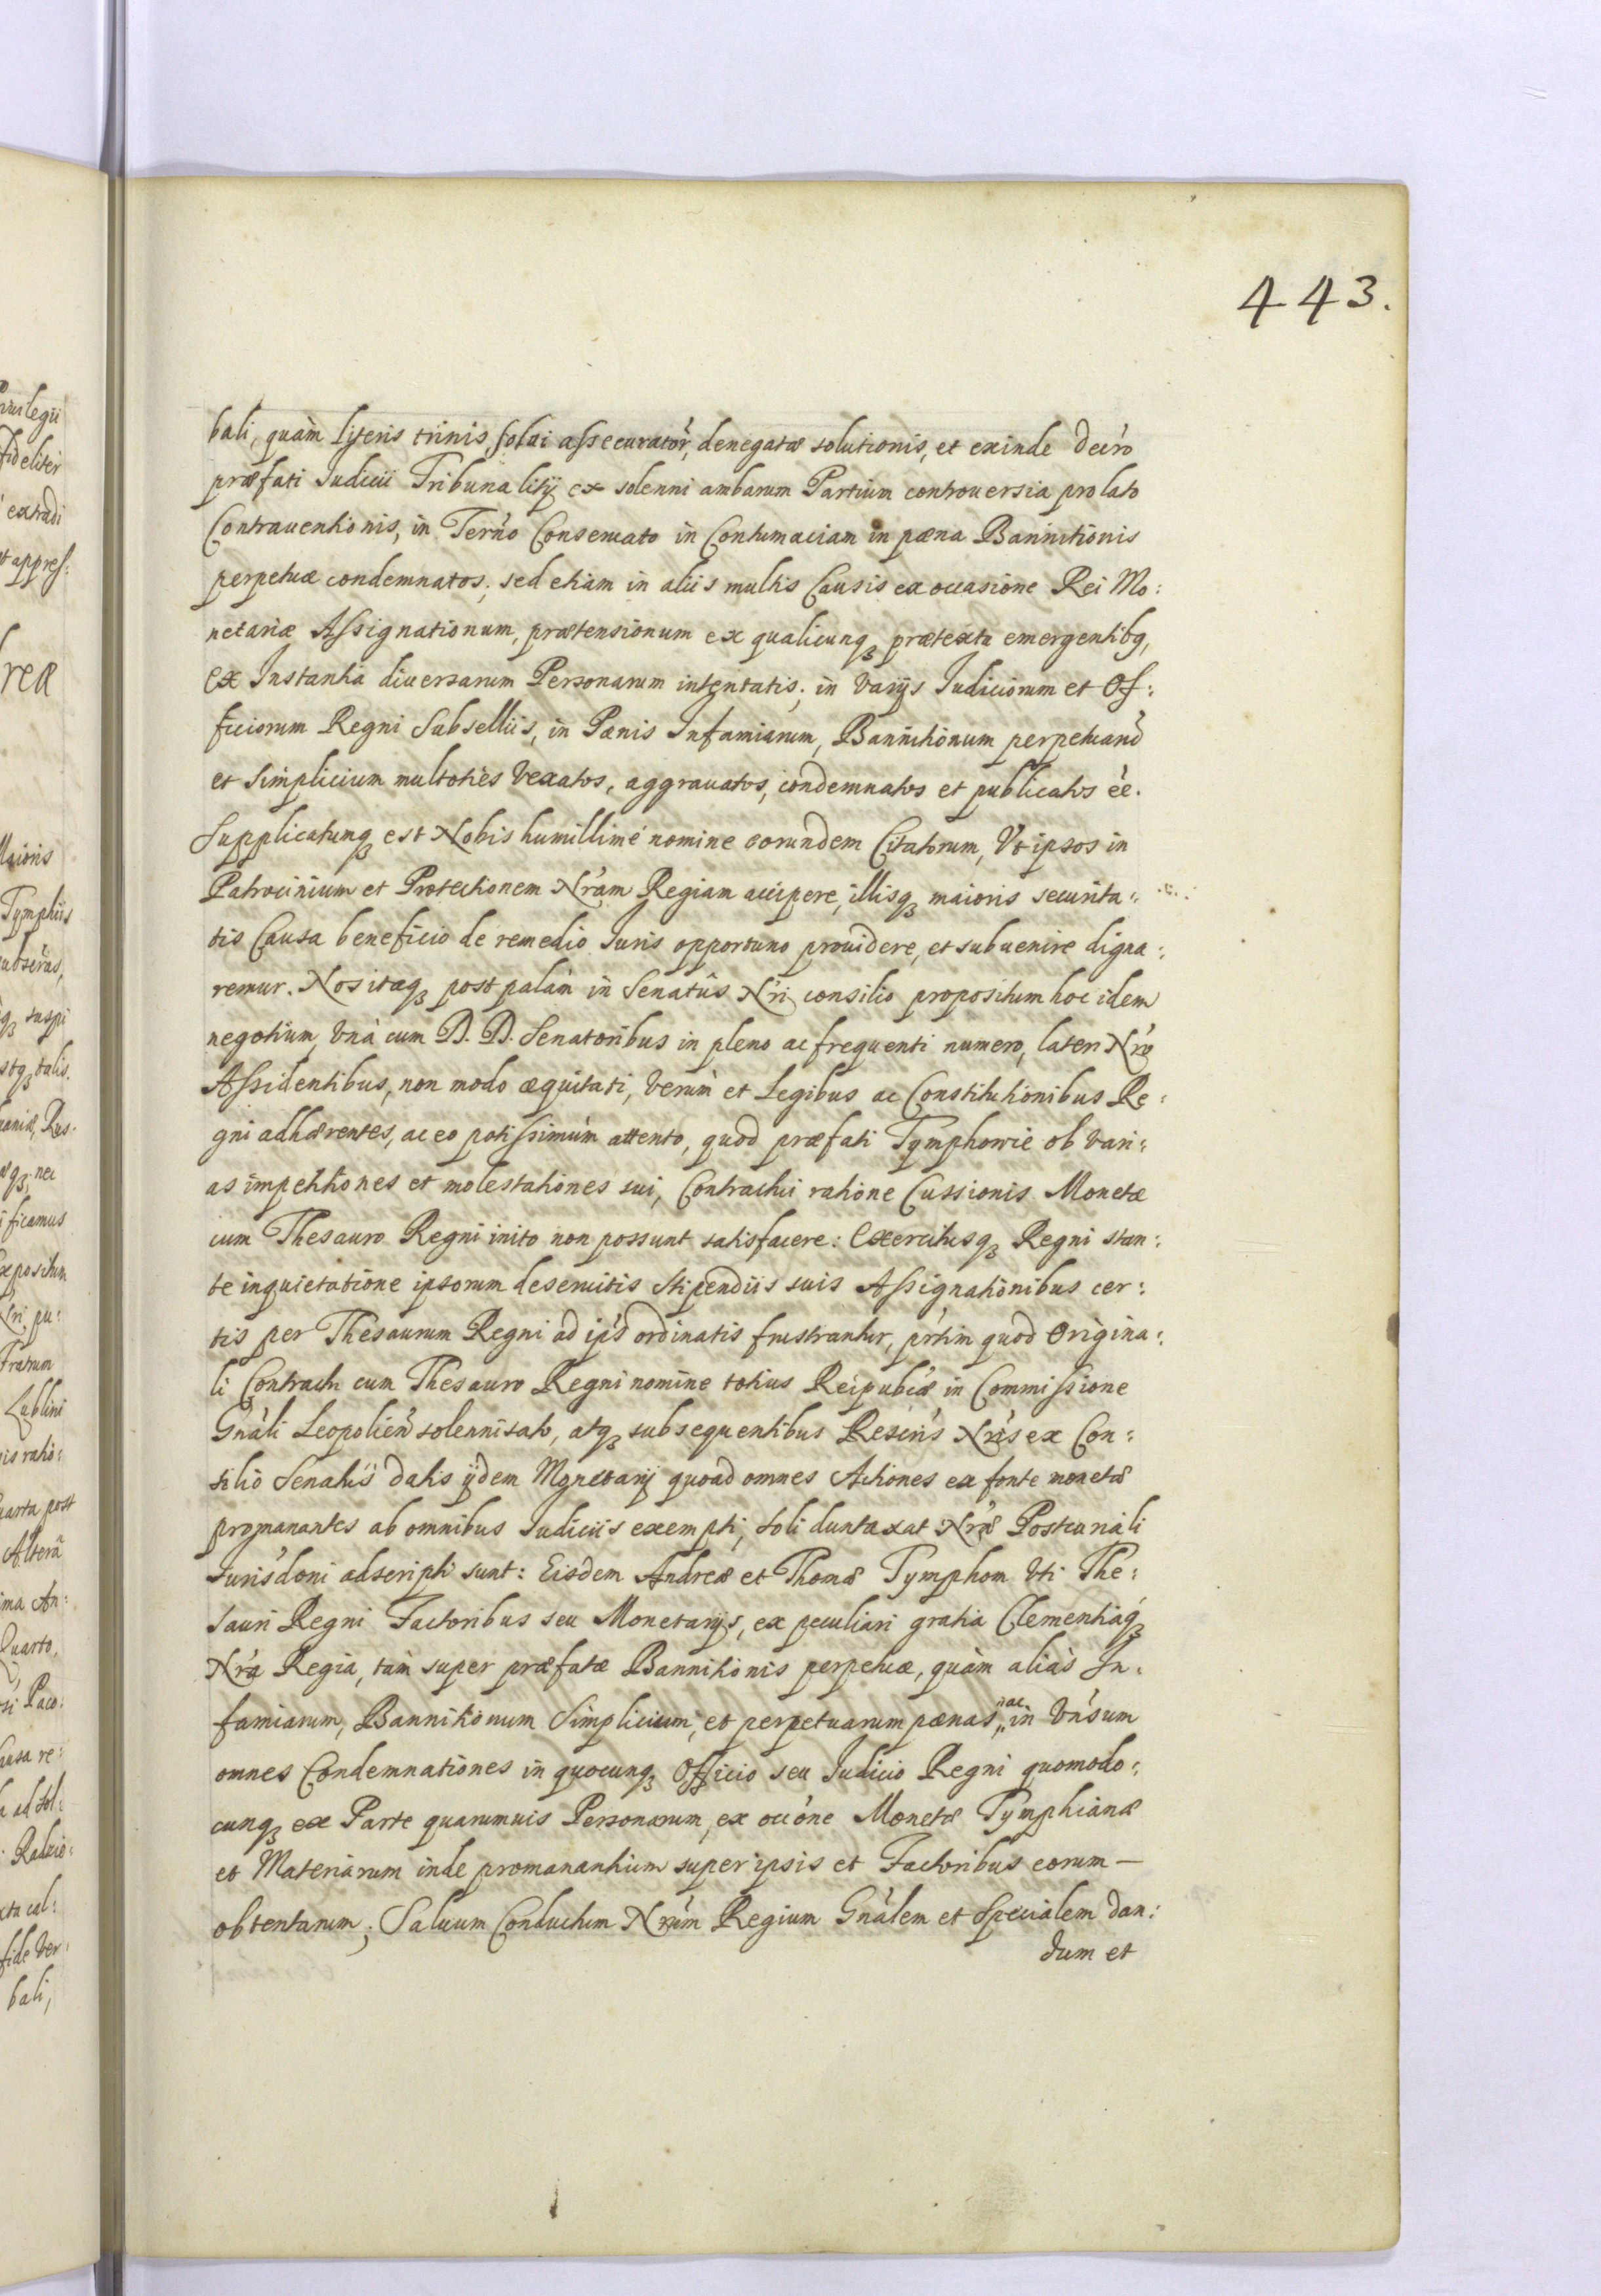 443.
bali, quàm literis trinis solui assecurator, denegatæ solutionis, et exinde Decro
præfati Iudicii Tribunalitij ex solenni ambarum Partium controuersia prolato
Contrauentionis, in Terno Conseruato in Contumaciam in pæna Bannitionis
perpetuæ condemnatos; sed etiam in aliis multis Causis ex occasione Rei Mo:
netariæ Assignationum, prætensionum ex qualicunq3 prætextu emergentibq,
ex Instantia diuersarum Personarum intentatis; in varijs Iudiciorum et Of:
ficiorum Regni Subselliis, in Pænis Infamiarum, Bannitionum perpetuand
et Simplicium multoties vexatos, aggrauatos, condemnatos et publicatos éé.
Supplicatumq3 est Nobis humillimé nomine eorundem Citatorum, Vt ipsos in
Patrocinium et Protectionem Nr̃am Regiam accipere, illisq3 maioris securita:
tis Causa beneficio de remedio Iuris opportuno prouidere, et subuenire digna:
remur. Nos itaq3 post palàm in Senatûs Nr̃i consilio propositum hoc idem
negotium, vnà cum D. D. Senatoribus in pleno ac frequenti numero, lateri Nr̃o
Assidentibus, non modo æquitati, verùm et Legibus ac Constitutionibus Re:
gni adhærentes, ac eo potissimúm attento, quod præfati Tymphowie ob vari:
as impetitiones et molestationes sui, Contractui ratione Cussionis Monetæ
cum Thesauro Regni inito non possunt satisfacere: Exercitusq3 Regni stan:
te inquietatione ipsorum deseruitis Stipendiis suis Assignationibus cer:
tis per Thesaurum Regni ad ip̃s ordinatis frustrantur, pr̃tim quod Origina:
li Contractu cum Thesauro Regni nomine totius Reipub̃cæ in Commissione
Gñali Leopolien̄ solennisato, atq3 subsequentibus Rescr̃is Nr̃is ex Con:
silio Senatûs datis ijdem Monetarij quoad omnes Actiones ex fonte monetæ
promanantes ab omnibus Iudiciis exempti, soli duntaxat Nr̃æ Postcuriali
Iurisd̃oni adscripti sunt: Eisdem Andreæ et Thomæ Tymphom vti The:
sauri Regni Factoribus seu Monetarijs, ex peculiari gratia Clementiaq3
Nr̃a Regia, tàm super præfatæ Bannitionis perpetuæ, quàm aliàs In:
famiarum, Bannitionum Simplicium, et perpetuarum pænas, ac in Vñsum
omnes Condemnationes in quocunq3 Officio seu Iudicio Regni quomodo:
cunq3 ex Parte quarumuis Personarum, ex occ̃one Monetæ Tymphianæ
et Materiarum inde promanantium super ipsis et Factoribus eorum —
obtentarum; Saluum Conductum Nr̃um Regium Gñalem et Specialem dan:
dum et